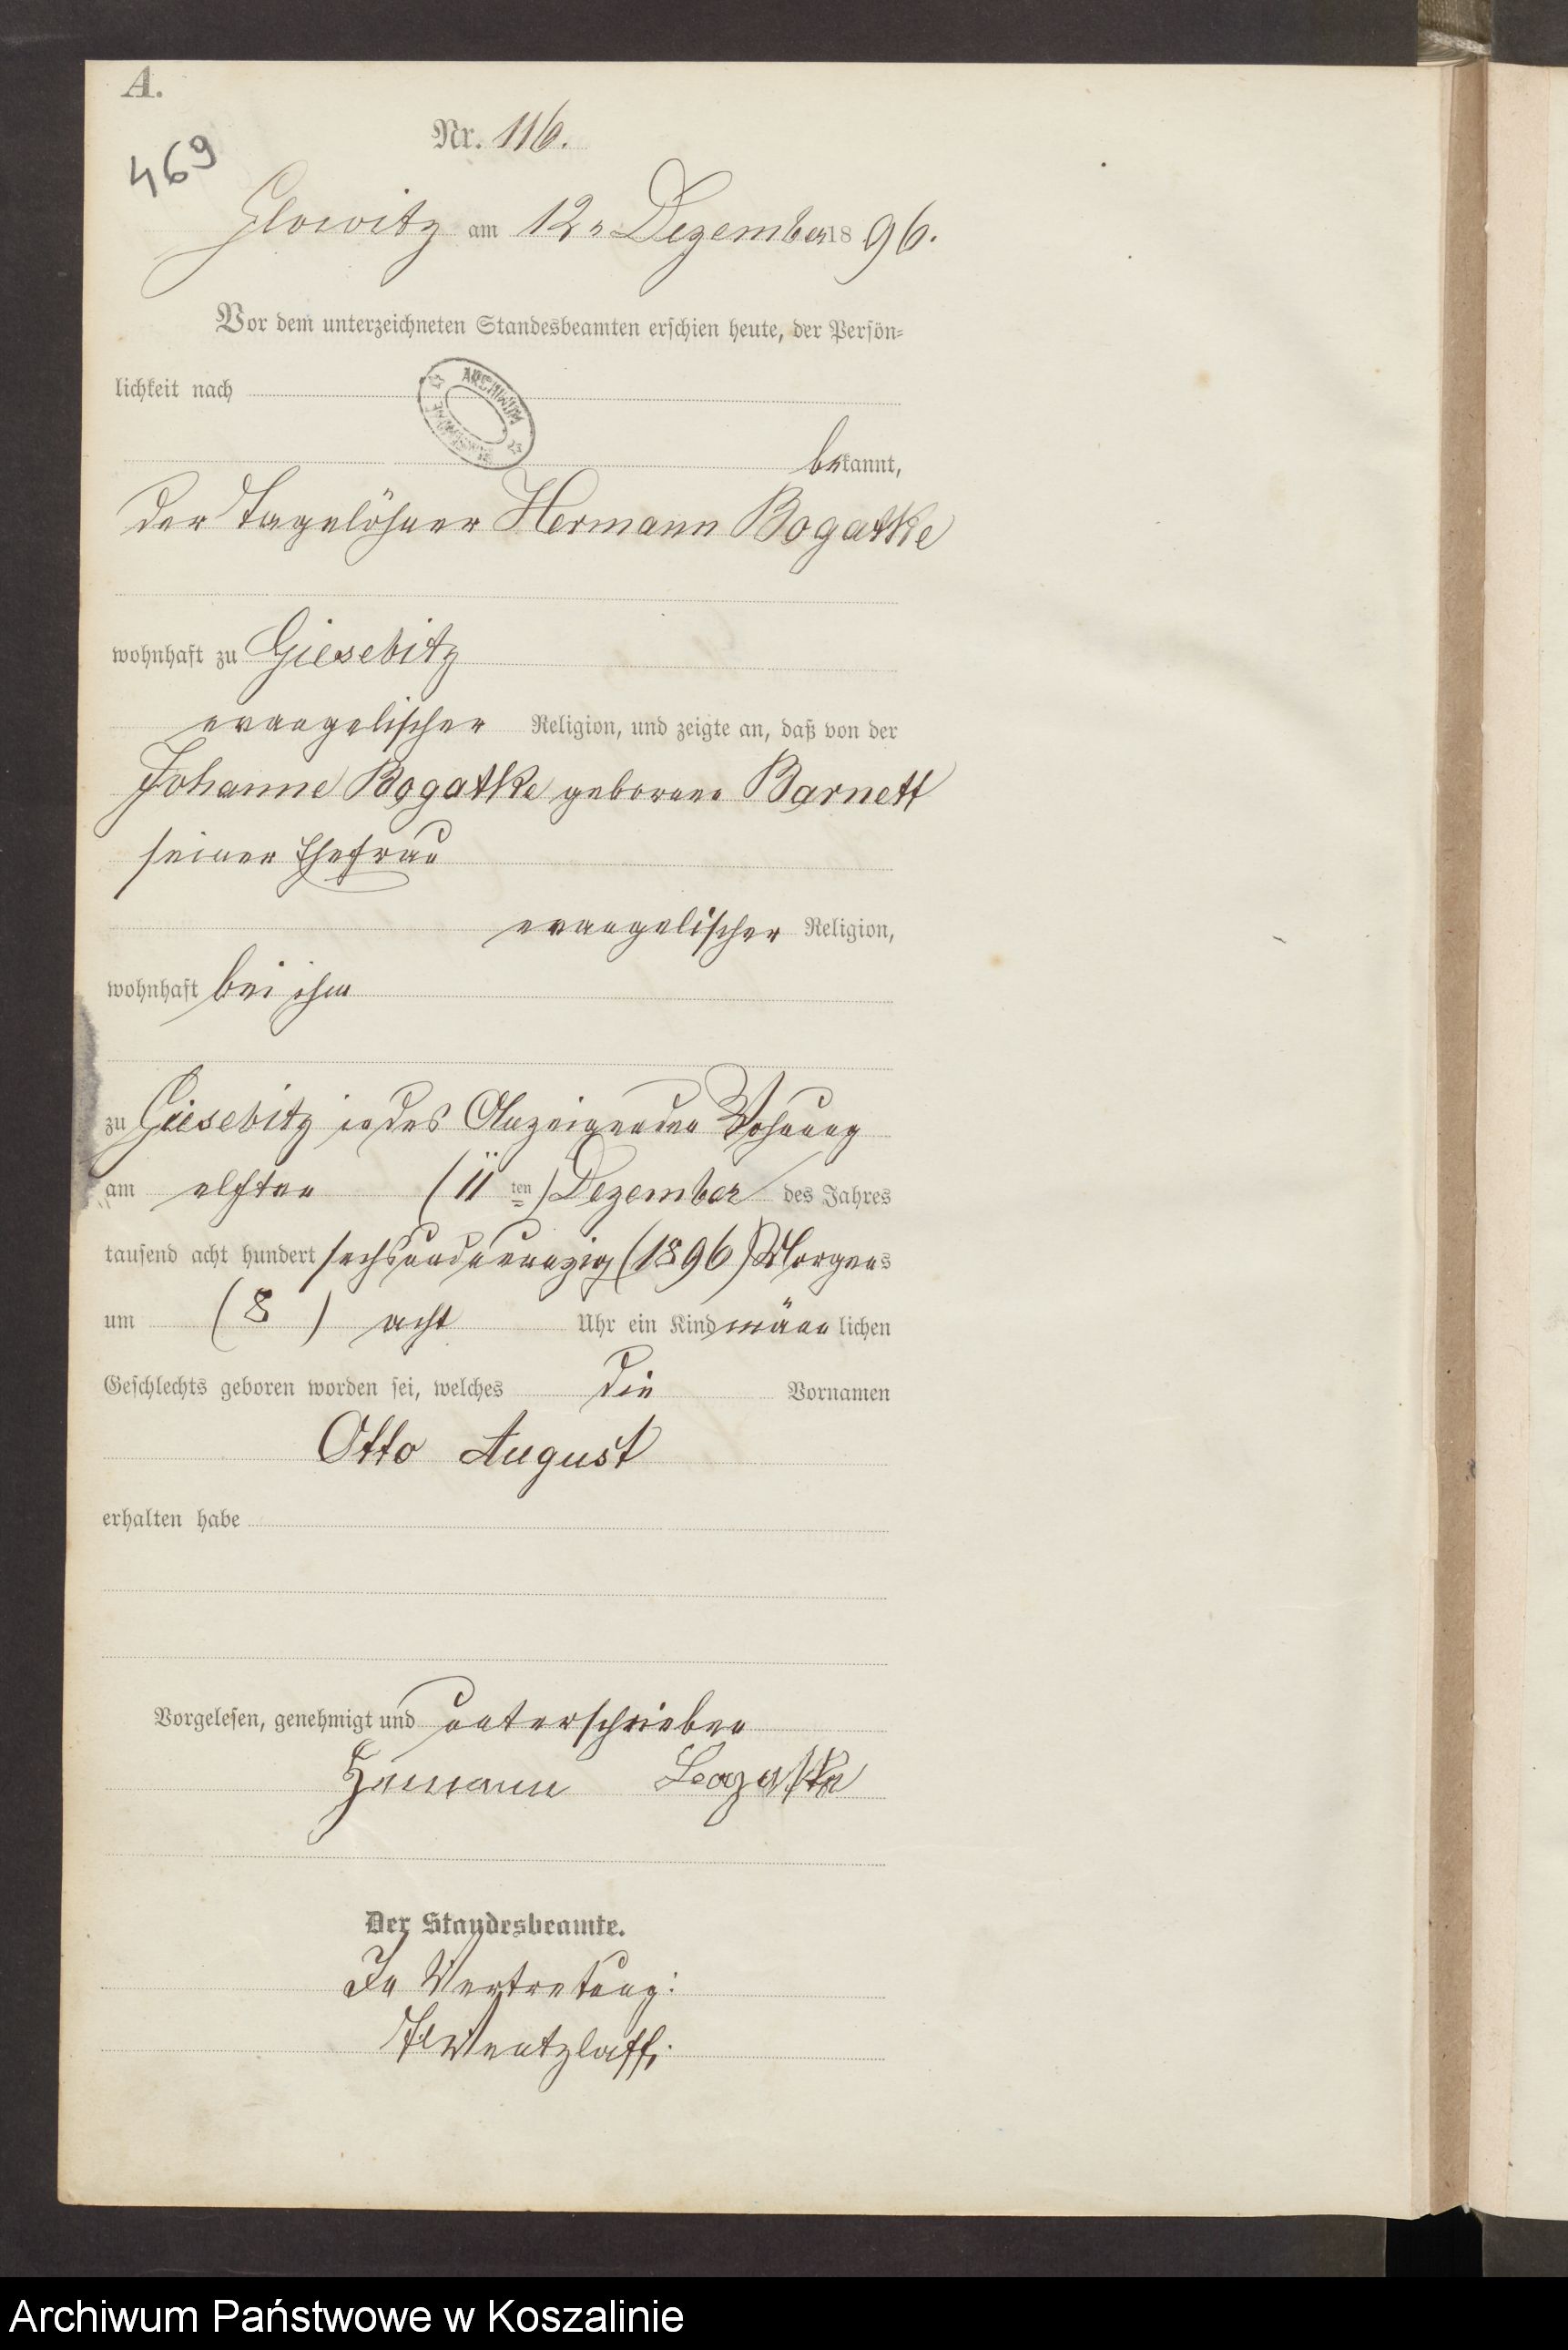 A.
469
Nr. 116.
Glowitz am 12n Dezember 18 96.
Vor dem unterzeichneten Standesbeamten erschien heute, der Persön-
lichkeit nach
ARCHIWUM
bekannt,
der Tagelöhner Hermann Bogatke
wohnhaft zu Giesebitz
evangelischer Religion, und zeigte an, daß von der
Johanne Bogatke geborene Barnett
seiner Ehefrau
evangelischer Religion,
wohnhaft bei ihm
zu Giesebitz in des Anzeigenden Wohnung
am elften (11 ten) Dezember des Jahres
tausend acht hundert sechsundneunzig (1896) Morgens
um (8) acht Uhr ein Kind männlichen
Geschlechts geboren worden sei, welches die Vornamen
Otto August
erhalten habe
Vorgelesen, genehmigt und unterschrieben
Hermann Bogatke
Der Standesbeamte.
In Vertretung:
Wentzlaff.
Archiwum Państwowe w Koszalinie